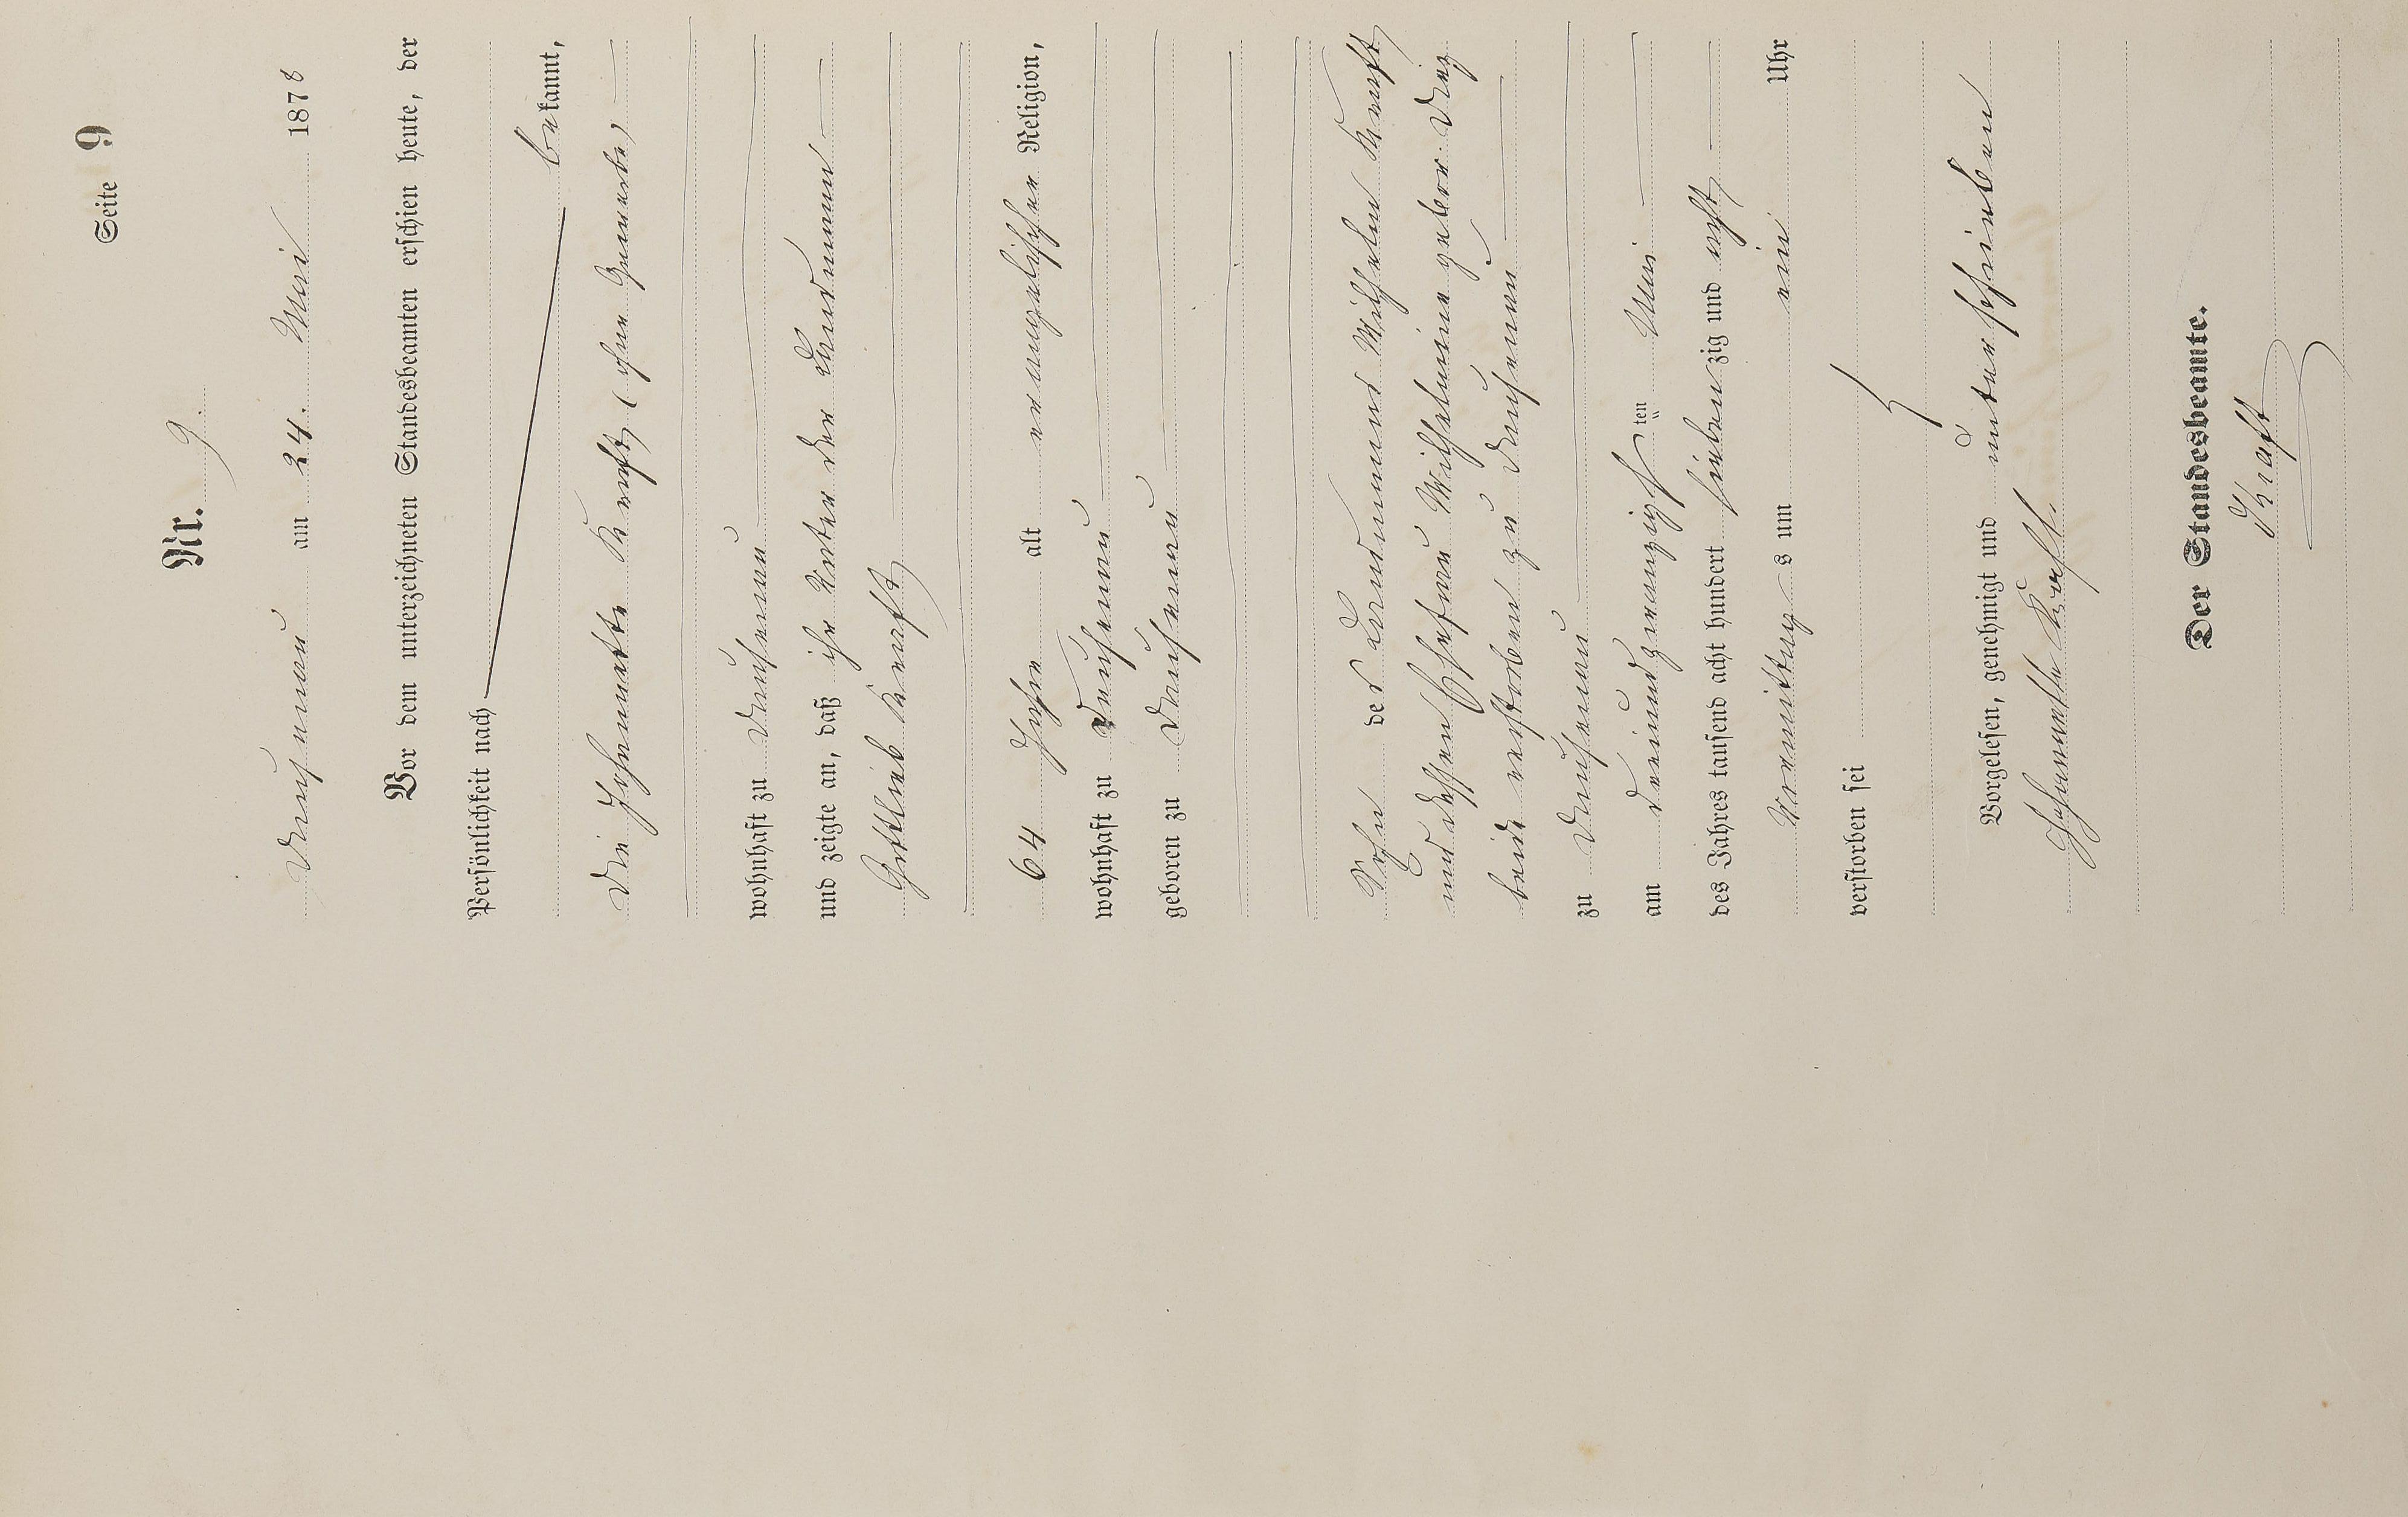 Seite 9
Nr. 9.
Dausenau am 24. Mai 1878
Vor dem unterzeichneten Standesbeamten erschien heute, der
Persönlichkeit nach
bekannt,
die Johannette Kraft, (ohne Gewerbe)
wohnhaft zu Dausenau
und zeigte an, daß ihr Vater der Landmann
Gottlieb Kraft,
64 Jahre alt evangelischer Religion,
wohnhaft zu Dausenau
geboren zu Dausenau
Sohn des Landmanns Wilhelm Kraft,
und dessen Ehefrau Wilhelmine gebor.
beide verstorben zu Dausenau
zu Dausenau
am dreiundzwanzigsten Mai
des Jahres tausend acht hundert siebenzig und acht,
Vormittags um ein Uhr
verstorben sei
Vorgelesen, genehmigt und unterschrieben
Johannette Kraft.
Der Standesbeamte.
Kraft